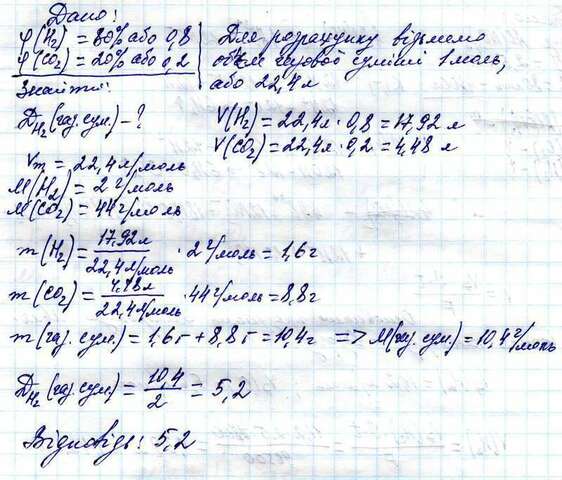 Дано:
φ(H₂) = 80% або 0,8
φ(CO₂) = 20% або 0,2
Знайти:
D_H₂(газ. сум.) - ?
Для розрахунку візьмемо
об'єм газової суміші 1 моль,
або 22,4 л
V(H₂) = 22,4 л · 0,8 = 17,92 л
V(CO₂) = 22,4 л · 0,2 = 4,48 л
Vm = 22,4 л/моль
M(H₂) = 2 г/моль
M(CO₂) = 44 г/моль
m(H₂) = 17,92 л / 22,4 л/моль · 2 г/моль = 1,6 г
m(CO₂) = 4,48 л / 22,4 л/моль · 44 г/моль = 8,8 г
m(газ. сум.) = 1,6 г + 8,8 г = 10,4 г => M(газ. сум.) = 10,4 г/моль
D_H₂(газ. сум.) = 10,4 / 2 = 5,2
Відповідь: 5,2